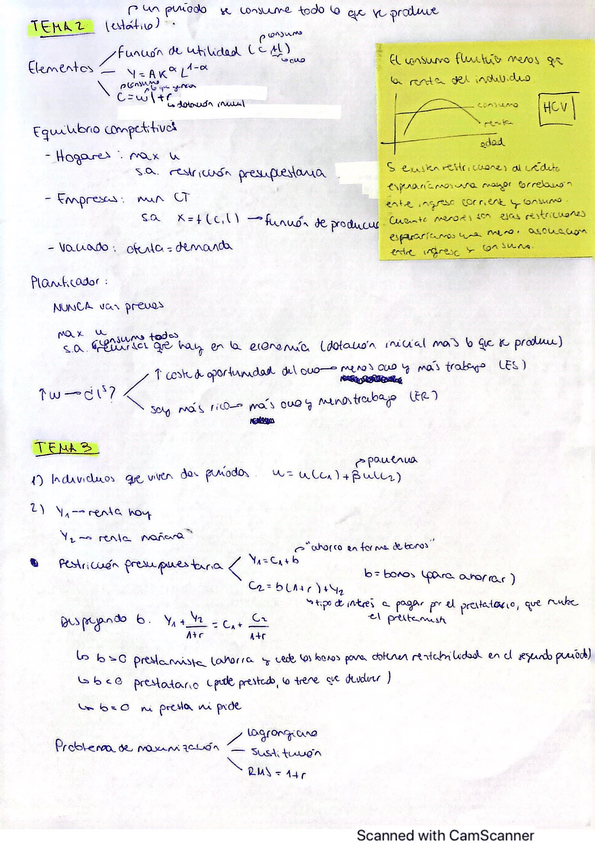 un período se consume todo lo que se produce
TEMA 2 (estático).
consumo
Elementos
función de utilidad (c, l)
ocio
Y = AK^α L^1-α
c = wl + r
dotación inicial
Equilibrio competitivo:
- Hogares: max u
s.a. restricción presupuestaria
- Empresas: min CT
s.a x = f(c,l) → función de produccu
- Vaciado: oferta = demanda
El consumo fluctúa menos que
la renta del individuo
consumo
renta
edad
HCV
S existen restricciones al crédito
esperaríamos una mayor correlación
entre ingreso corriente y consumo.
Cuanto menores son esas restricciones
esperaríamos una menor asociación
entre ingreso y consumo.
Planificador:
NUNCA vas precios
max u
consumo todos
s.a. recursos que hay en la economía (dotación inicial más lo que se produce)
↑w → ¿l^s?
↑ coste de oportunidad del ocio → menos ocio y más trabajo (ES)
soy más rico → más ocio y menos trabajo (ER)
TEMA 3
paciencia
1) Individuos que viven dos períodos. u = u(c1) + βu(c2)
2) Y1 → renta hoy
Y2 → renta mañana
"ahorro en forma de bonos"
Restricción presupuestaria
Y1 = c1 + b
b = bonos (para ahorrar)
C2 = b(1+r) + Y2
tipo de interés a pagar por el prestatario, que recibe
el prestamista
Despejando b. Y1 + Y2/1+r = C1 + C2/1+r
↳ b>0 prestamista (ahorra y cede los bonos para obtener rentabilidad en el segundo período)
↳ b<0 prestatario (pide prestado, lo tiene que devolver)
↳ b=0 ni presta ni pide
Problema de maximización
lagrangiano
sustitución
RMS = 1+r
Scanned with CamScanner